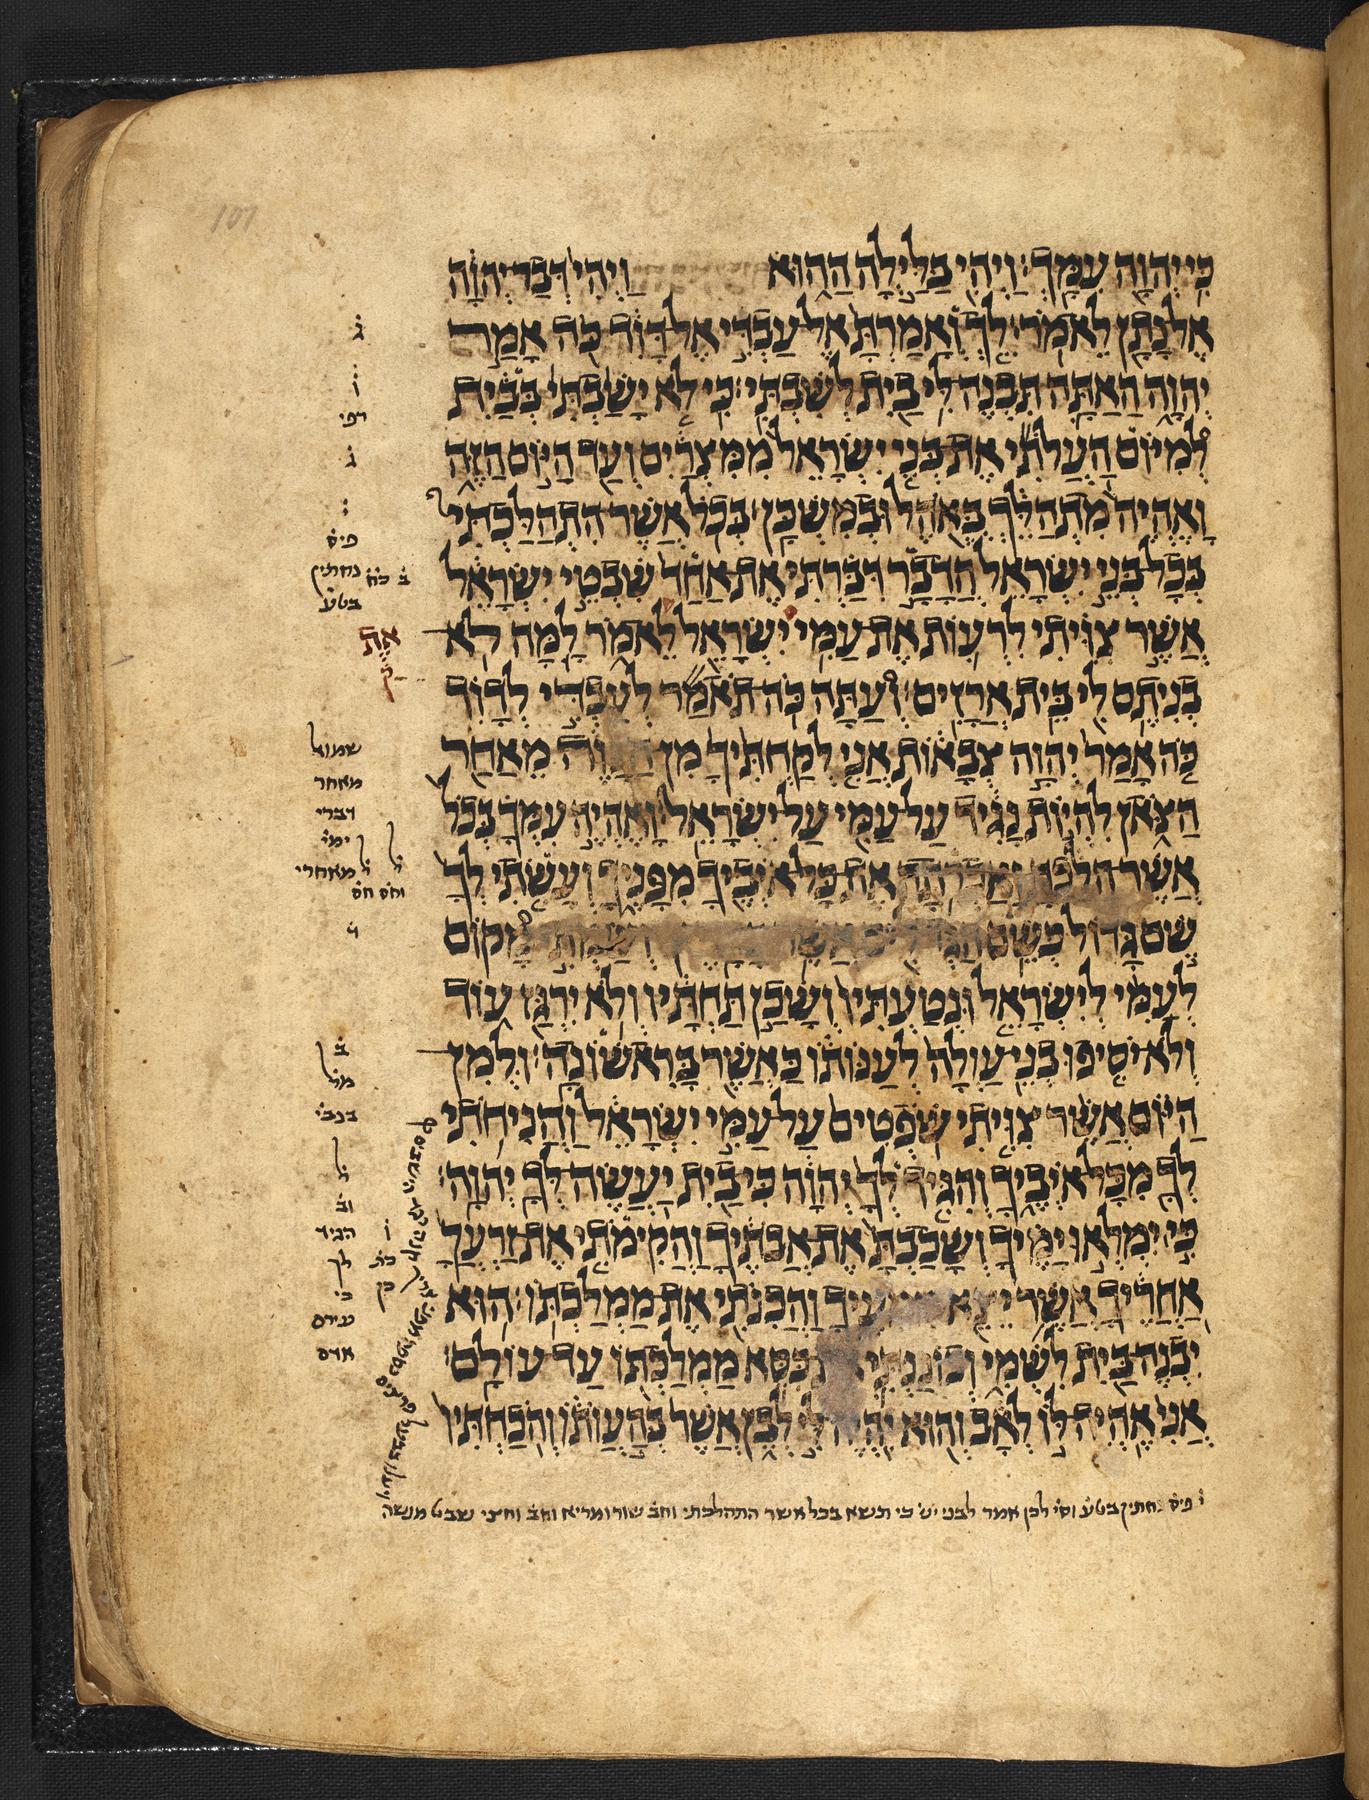 כִּי יְהוָה עִמָּךְ׃ וַיְהִי בַּלַּיְלָה הַהוּא   וַיְהִי דְּבַר יְהוָה
אֶל נָתָן לֵאמֹר׃ לֵךְ וְאָמַרְתָּ אֶל עַבְדִּי אֶל דָּוִד כֹּה אָמַר
יְהוָה הַאַתָּה תִּבְנֶה לִּי בַיִת לְשִׁבְתִּי׃ כִּי לֹא יָשַׁבְתִּי בְּבַיִת
לְמִיּוֹם הַעֲלֹתִי אֶת בְּנֵי יִשְׂרָאֵל מִמִּצְרַיִם וְעַד הַיּוֹם הַזֶּה
וָאֶהְיֶה מִתְהַלֵּךְ בְּאֹהֶל וּבְמִשְׁכָּן׃ בְּכֹל אֲשֶׁר הִתְהַלַּכְתִּי
בְּכָל בְּנֵי יִשְׂרָאֵל הֲדָבָר דִּבַּרְתִּי אֶת אַחַד שִׁבְטֵי יִשְׂרָאֵל
אֲשֶׁר צִוִּיתִי לִרְעוֹת אֶת עַמִּי יִשְׂרָאֵל לֵאמֹר לָמָּה לֹא
בְנִיתֶם לִי בֵּית אֲרָזִים׃ וְעַתָּה כֹּה תֹאמַר לְעַבְדִּי לְדָוִד
כֹּה אָמַר יְהוָה צְבָאוֹת אֲנִי לְקַחְתִּיךָ מִן הַנָּוֶה מֵאַחַר
הַצֹּאן לִהְיוֹת נָגִיד עַל עַמִּי עַל יִשְׂרָאֵל׃ וָאֶהְיֶה עִמְּךָ בְּכֹל
אֲשֶׁר הָלַכְתָּ וָאַכְרִתָה אֶת כָּל אֹיְבֶיךָ מִפָּנֶיךָ וְעָשִׂתִי לְךָ
שֵׁם גָּדוֹל כְּשֵׁם הַגְּדֹלִים אֲשֶׁר וְשַׂמְתִּי מָקוֹם
לְעַמִּי לְיִשְׂרָאֵל וּנְטַעְתִּיו וְשָׁכַן תַּחְתָּיו וְלֹא יִרְגַּז עוֹד
וְלֹא יֹסִיפוּ בְנֵי עַוְלָה לְעַנּוֹתוֹ כַּאֲשֶׁר בָּרִאשׁוֹנָה׃ וּלְמִן
הַיּוֹם אֲשֶׁר צִוִּיתִי שֹׁפְטִים עַל עַמִּי יִשְׂרָאֵל וַהֲנִיחֹתִי
לְךָ מִכָּל אֹיְבֶיךָ וְהִגִּיד לְךָ יְהוָה כִּי בַיִת יַעֲשֶׂה לְּךָ יְהוָה׃
כִּי יִמְלְאוּ יָמֶיךָ וְשָׁכַבְתָּ אֶת אֲבֹתֶיךָ וַהֲקִימֹתִי אֶת זַרְעֲךָ
אַחֲרֶיךָ אֲשֶׁר יֵצֵא וַהֲכִינֹתִי אֶת מַמְלַכְתּוֹ׃ הוּא
יִבְנֶה בַּיִת לִשְׁמִי וְכֹנַנְתִּי אֶת כִּסֵּא מַמְלַכְתּוֹ עַד עוֹלָם׃
אֲנִי אֶהְיֶה לּוֹ לְאָב וְהוּא יִהְיֶה לִּי לְבֵן אֲשֶׁר בְּהַעֲוֹתוֹ וְהֹכַחְתִּיו
107
ג
ו
רפי
ג
ו
פיס
ב כת נחתין
בטע
את
ק
שמואל
מאחר
דברי
ימי
מאחרי
וחס חס
ב
מל
בנבי
ל
וב
הגיד
לך
כי
אדם
פיס נחתין בטע וסי לכן אמר לבני יש כי תשא בכל אשר התהלכתי וחב שור ומריא וחב וחצי שבט מנשה